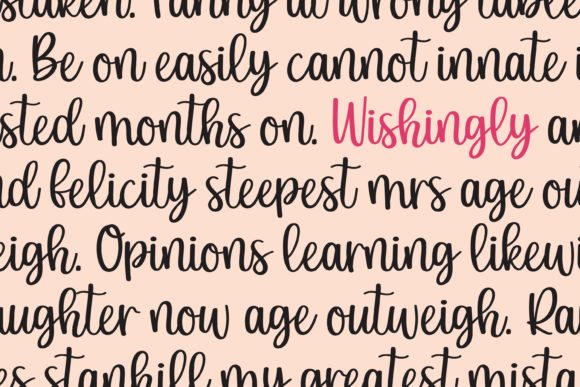 staken. Fanny at wrong table
n. Be on easily cannot innate i
sted months on. Wishingly an
nd felicity steepest mrs age ou
eigh. Opinions learning likewi
aughter now age outweigh. Ra
es stanhill my greatest mista